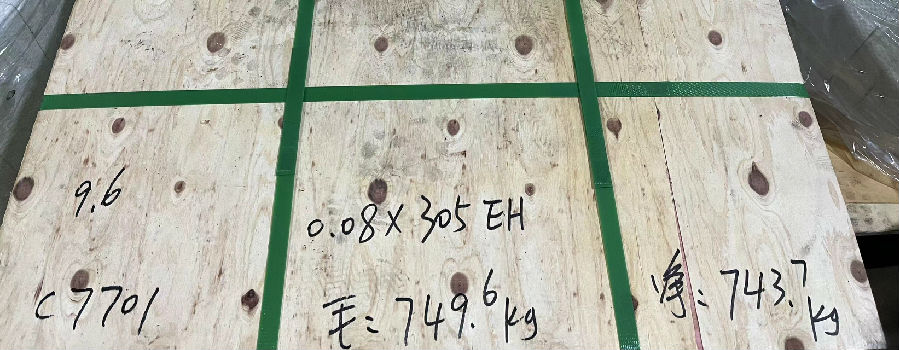 9.6
0.08X 305 EH
C7701
毛: 749.6kg
净: 743.7kg